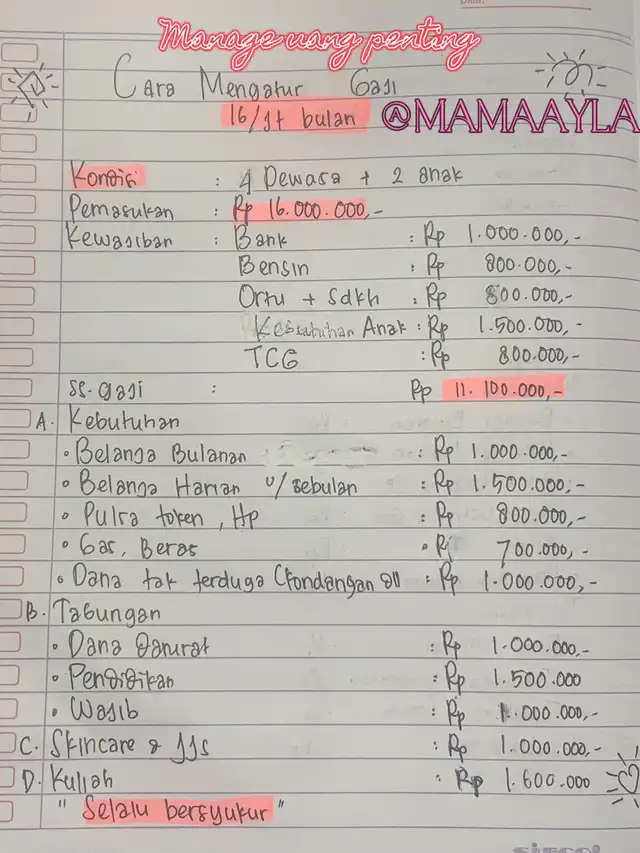 Manage uang penting
Cara Mengatur Gaji
16/jt bulan
@MAMAAYLA
Kondisi : 4 Dewasa + 2 anak
Pemasukan : Rp 16.000.000,-
Kewajiban : Bank : Rp 1.000.000,-
Bensin : Rp 800.000,-
Ortu + Sdkh : Rp 800.000,-
Kebutuhan Anak : Rp 1.500.000,-
TCG : Rp 800.000,-
SS. gaji : Rp 11.100.000,-
A. Kebutuhan
• Belanja Bulanan : Rp 1.000.000,-
• Belanja Harian U/sebulan : Rp 1.500.000,-
• Pulsa token, Hp : Rp 800.000,-
• Gas, Beras : Rp 700.000,-
• Dana tak terduga (Kondangan dll : Rp 1.000.000,-
B. Tabungan
• Dana darurat : Rp 1.000.000,-
• Pendidikan : Rp 1.500.000
• Wajib : Rp 1.000.000,-
C. Skincare & jjs : Rp 1.000.000,-
D. Kuliah : Rp 1.600.000
"Selalu bersyukur"